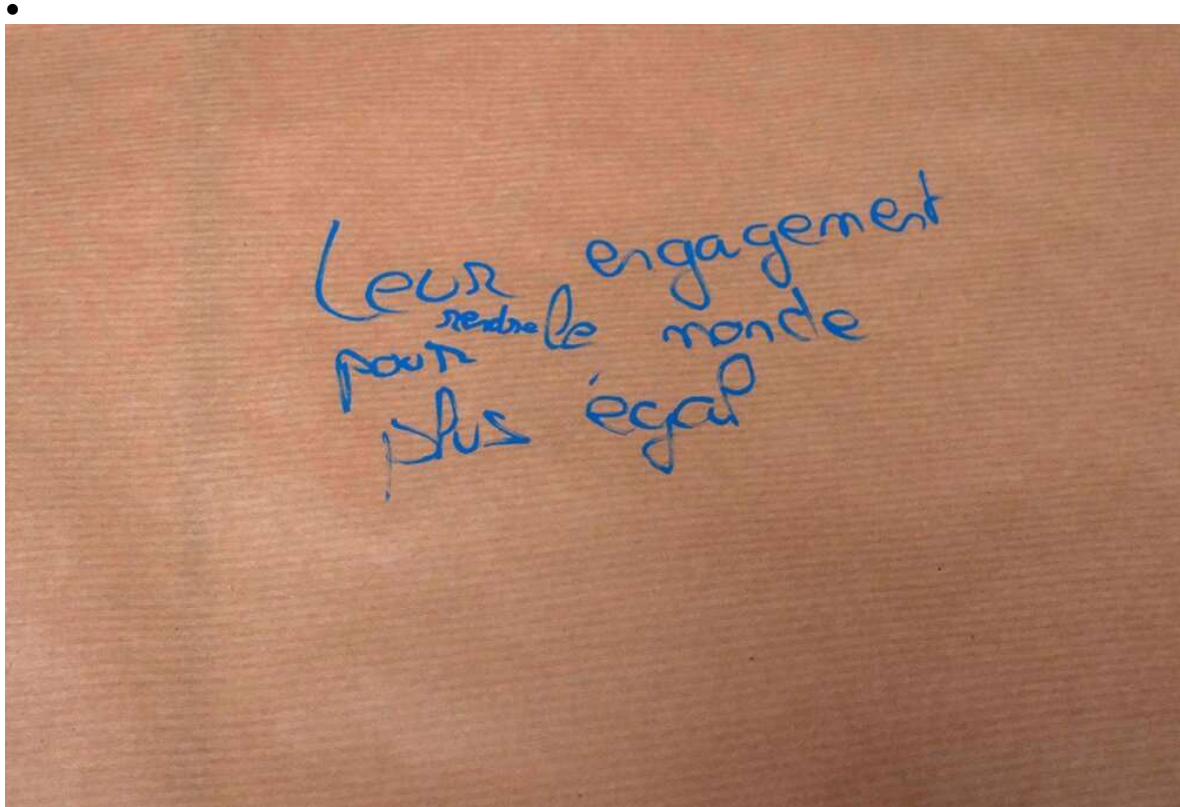 Leur engagement
pour rendre le monde
plus égal